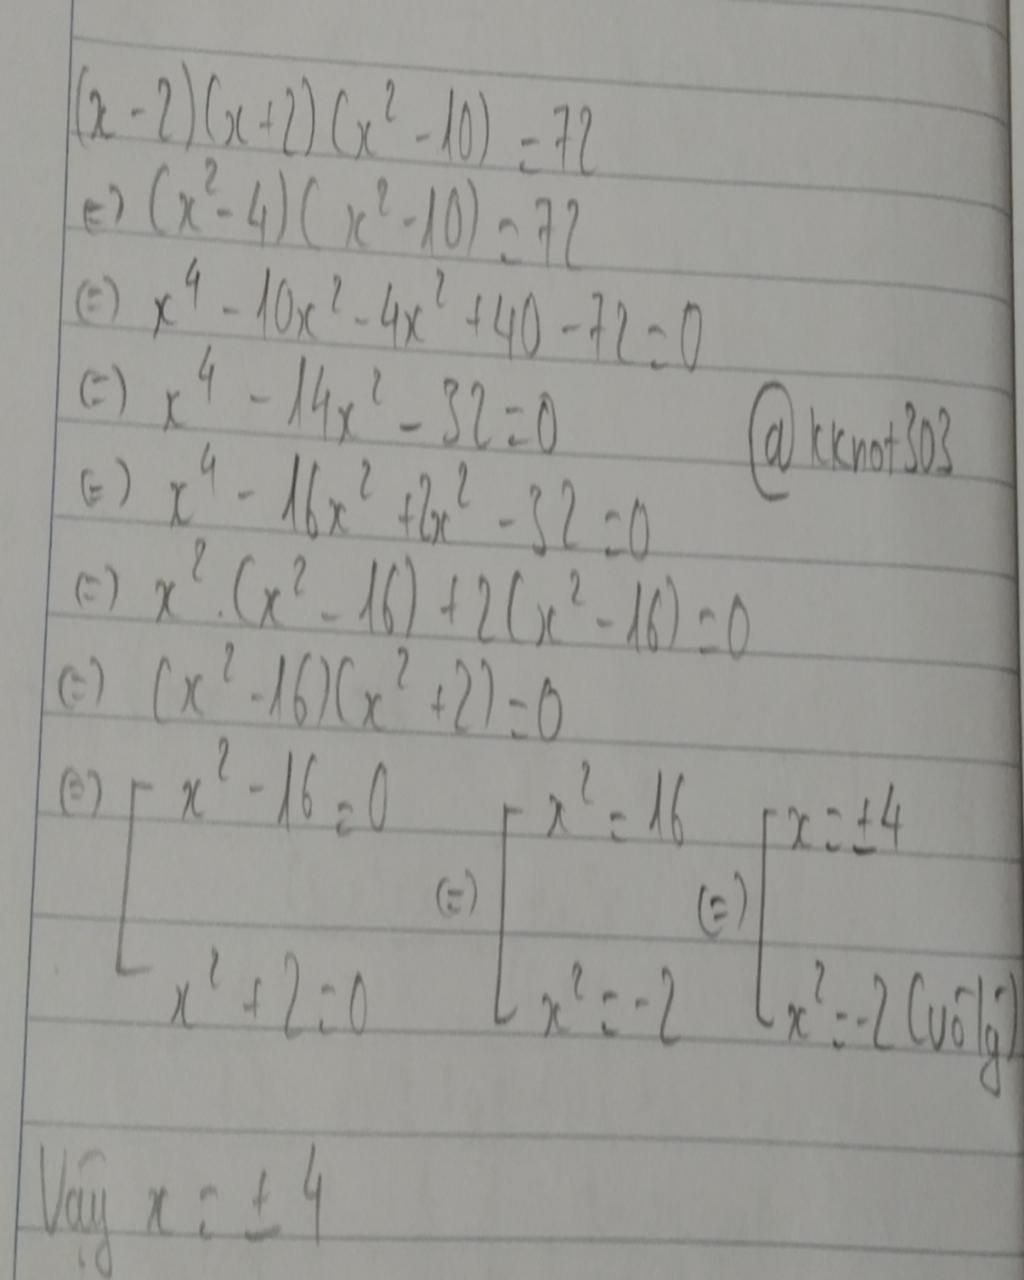 (x - 2)(x + 2)(x² - 10) = 72
⇔ (x² - 4)(x² - 10) = 72
⇔ x⁴ - 10x² - 4x² + 40 - 72 = 0
⇔ x⁴ - 14x² - 32 = 0
@kknot303
⇔ x⁴ - 16x² + 2x² - 32 = 0
⇔ x² . (x² - 16) + 2(x² - 16) = 0
⇔ (x² - 16)(x² + 2) = 0
⇔ [ x² - 16 = 0 ⇔ [ x² = 16 ⇔ [ x = ±4
x² + 2 = 0 x² = -2 x² = -2 (vô lý)
Vậy x = ± 4